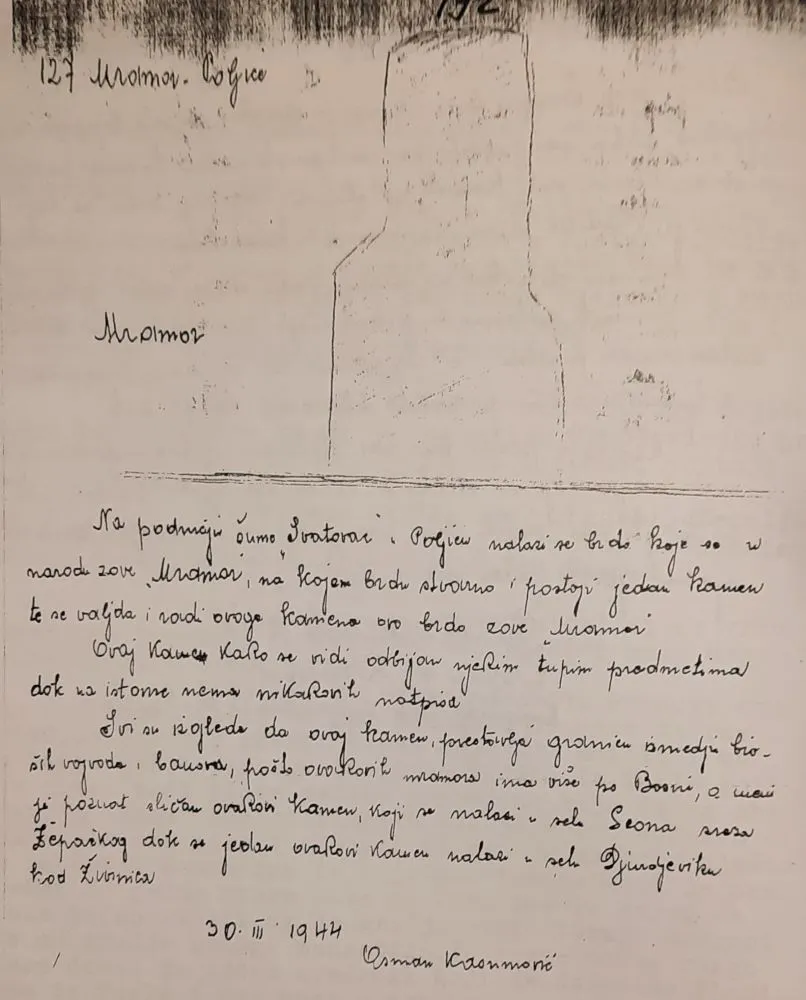 192
127 Mramor - Poljice
Mramor
Na podnožju šume "Svatovac" i Poljica nalazi se brdo koje se u
narodu zove "Mramor", na kojem brdu stvarno i postoji jedan kamen
te se valjda i radi ovoga kamena ovo brdo zove "Mramor"
Ovaj kamen kako se vidi odbijan njekim tupim predmetima
dok na istome nema nikakovih natpisa
Svi su izgleda da ovaj kamen, prestavlja granicu ismedju bio-
ših vojvoda i banova, pošto ovakovih mramora ima više po Bosni, a meni
je poznat sličan ovakovi kamen, koji se nalazi u selu Seona sreza
Žepačkog dok se jedan ovakovi kamen nalazi u selu Djurdjeviku
kod Živinica
30. III 1944
Osman Kasumović